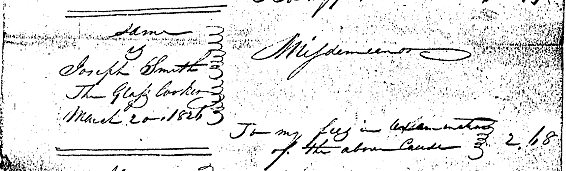 same
vs
Joseph Smith
The Glass looker
March 20, 1826
Misdemeanor
To my fees in examination
of the above Cause 2.68